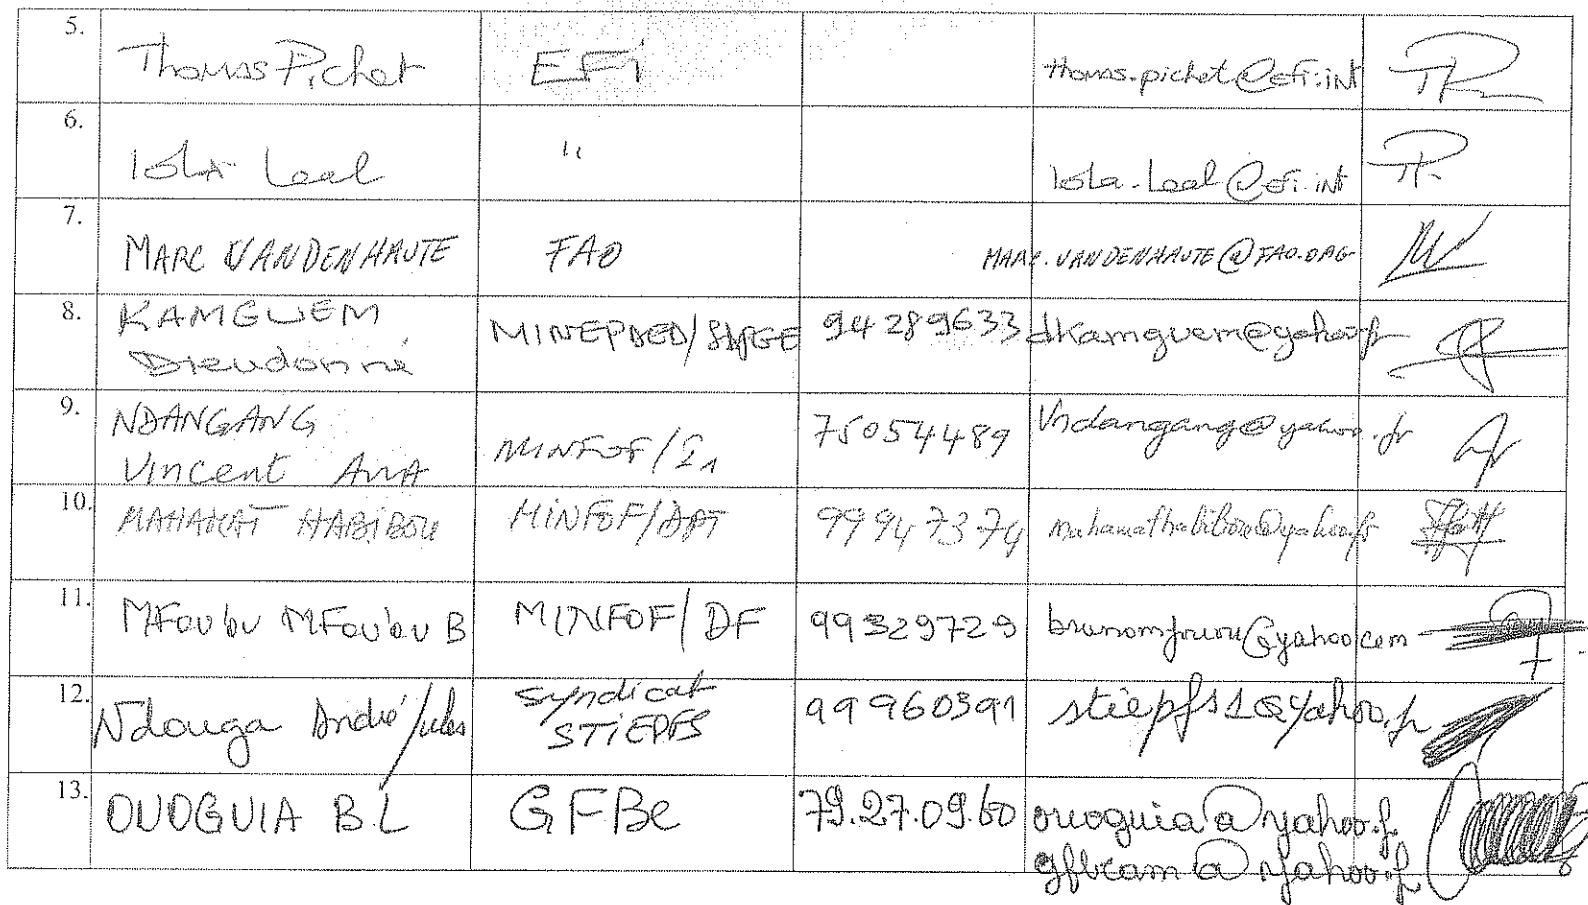 5. Thomas Pichet EFi thomas.pichet@efi.int
6. Iola Leal " Iola.Leal@efi.int
7. MARC VANDENHAUTE FAO MARC.VANDENHAUTE@FAO.ORG
8. KAMGUEM
Dieudonné MINEPDED/ 94 289633 dkamguem@yahoo.fr
9. NDANGANG
Vincent MINFOF/ 75054489 Vndangang@yahoo.fr
10. MAHAMAT HABIBOU MINFOF/ 99947374 mahamathabibou@yahoo.fr
11. MFou'ou MFou'ou B MINFOF/DF 99329729 brunomfouou@yahoo.com
12. Ndouga André Jules syndicat
STIEPFS 99960391 stiepfs1@yahoo.fr
13. OUOGUIA B.L GFBC 79.27.09.60 ouoguia@yahoo.f
gfbcam@yahoo.f